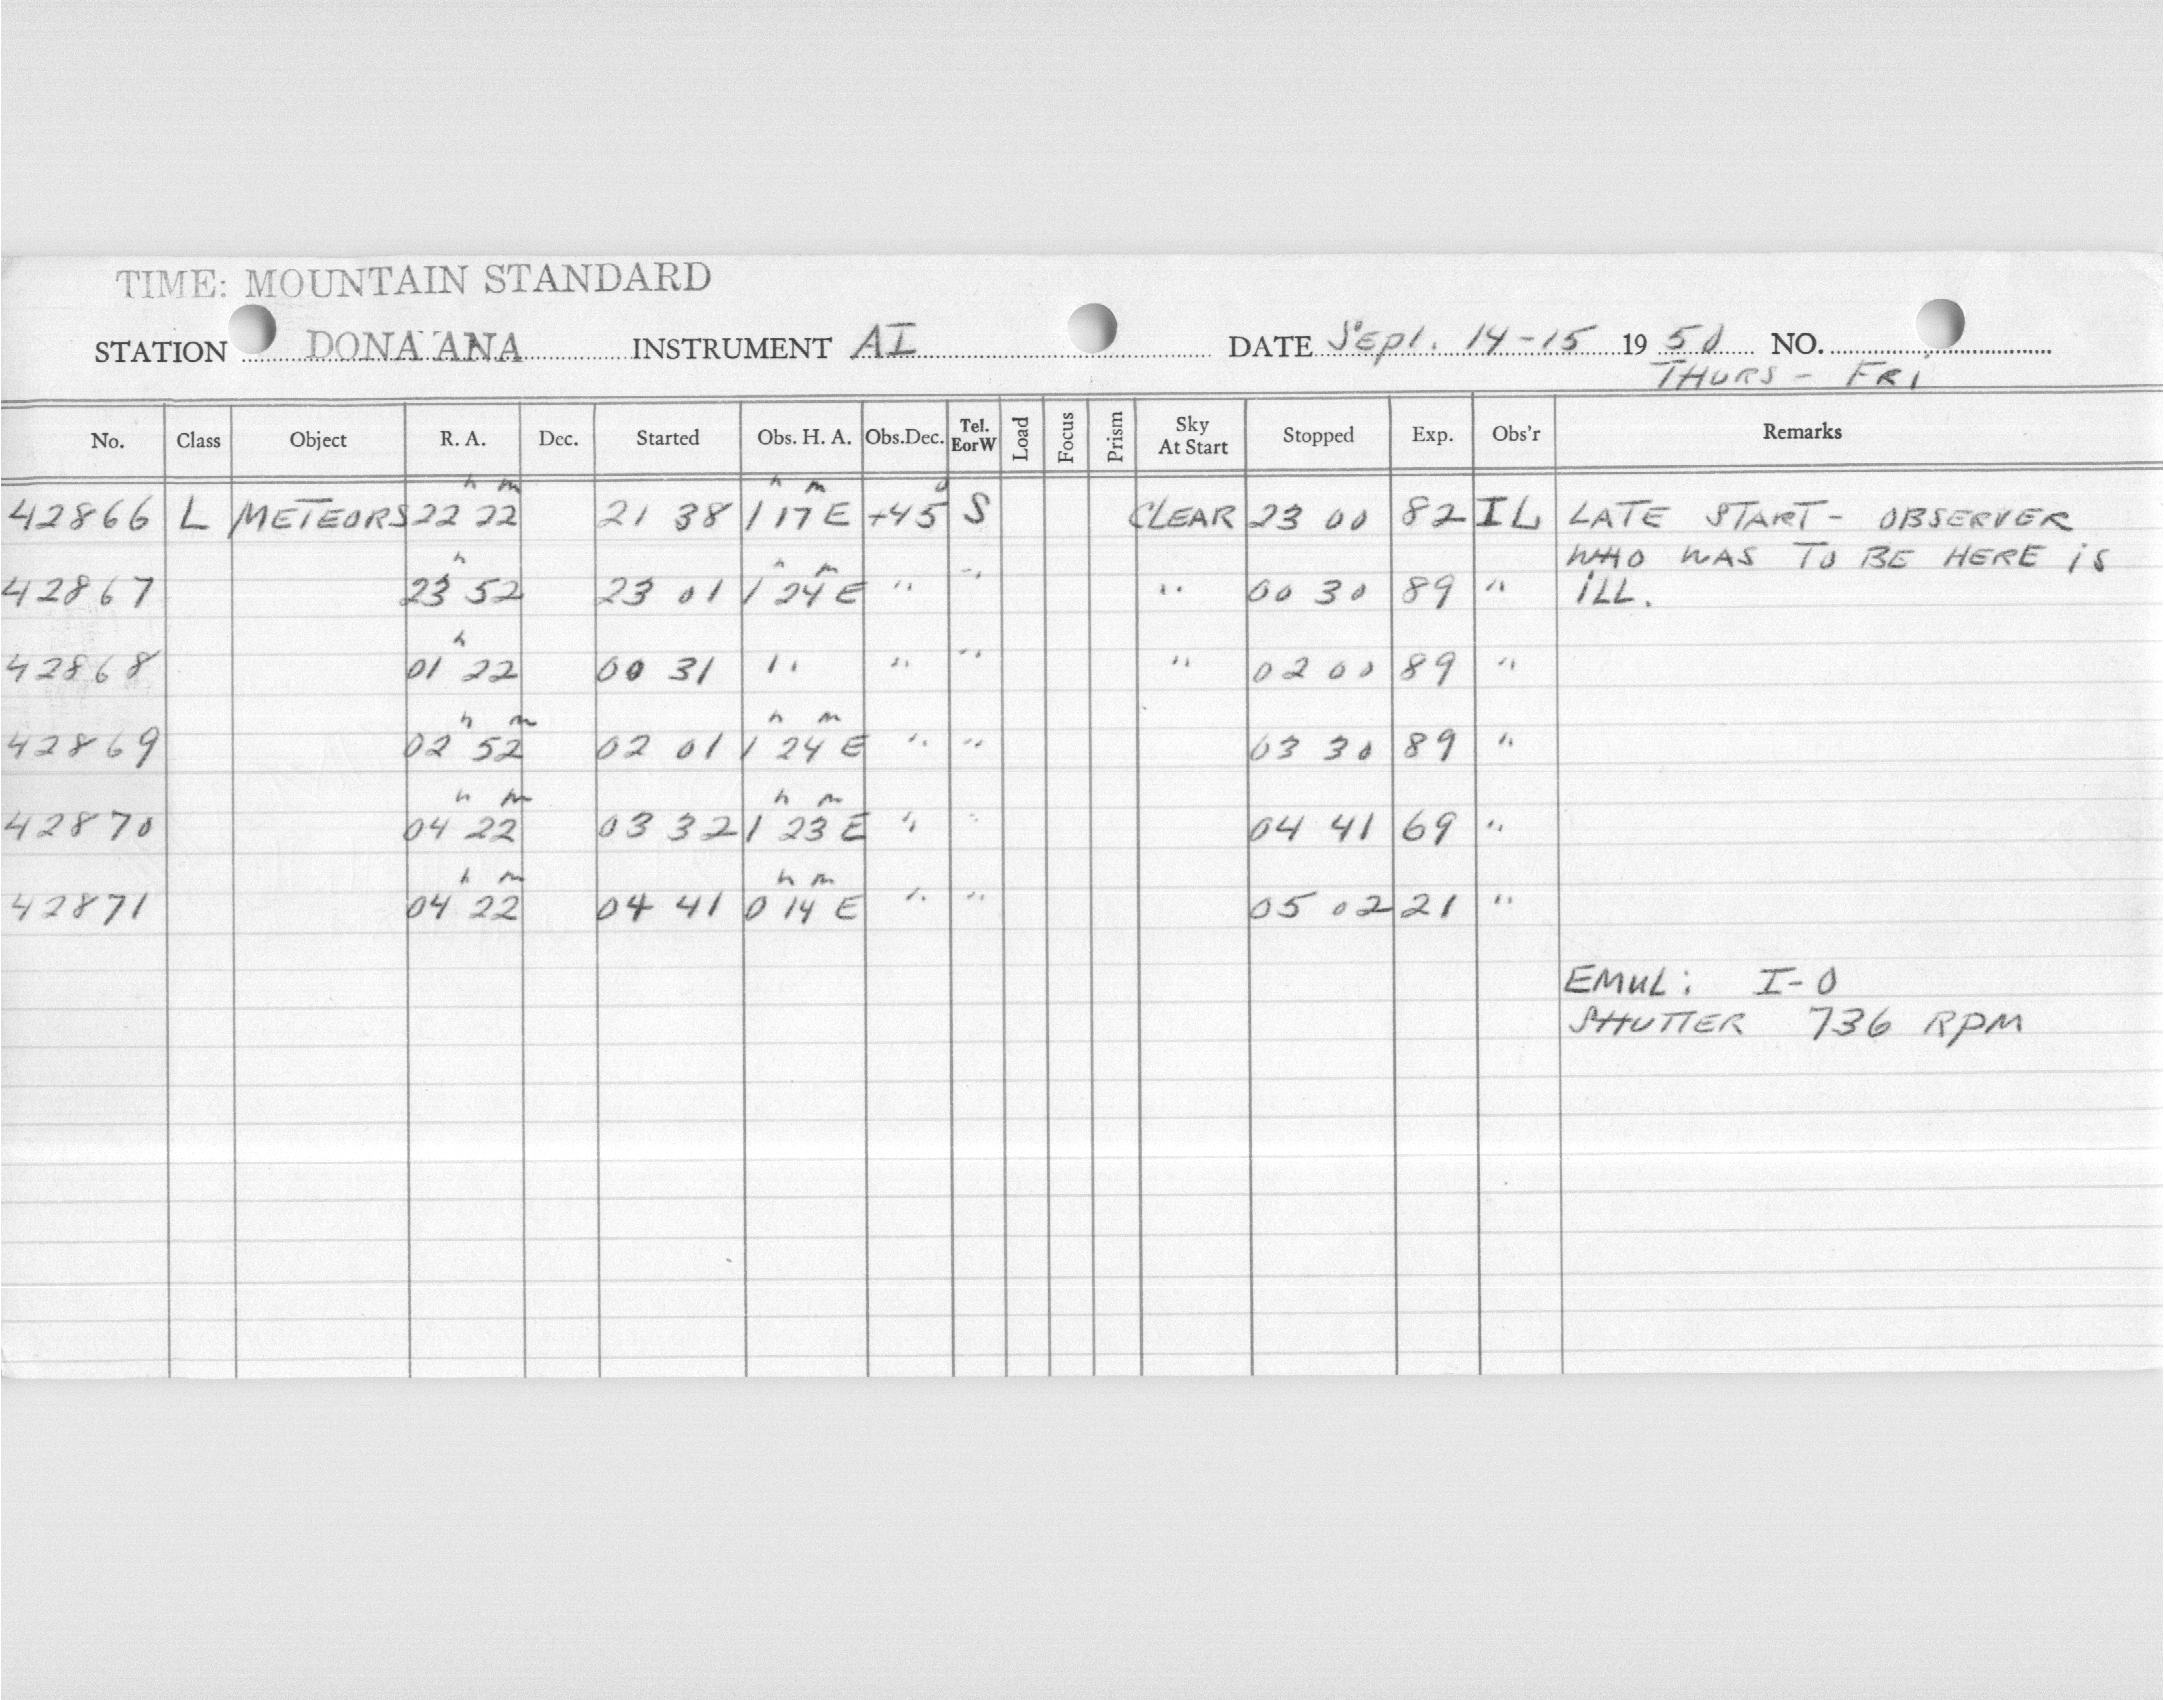 TIME: MOUNTAIN STANDARD
STATION DONA ANA INSTRUMENT AI DATE Sept. 14-15 1950 NO.
THURS - FRI
No. Class Object R. A. Dec. Started Obs. H. A. Obs.Dec. Tel. EorW Load Focus Prism Sky At Start Stopped Exp. Obs'r Remarks
42866 L METEORS 22h 22m 21 38 1h 17m E +45° S CLEAR 23 00 82 IL LATE START - OBSERVER
WHO WAS TO BE HERE IS
42867 23h 52 23 01 1h 24m E " " " 00 30 89 " ILL.
42868 01h 22 00 31 " " " " 02 00 89 "
42869 02h 52m 02 01 1h 24m E " " 03 30 89 "
42870 04h 22m 03 32 1h 23m E " " 04 41 69 "
42871 04h 22m 04 41 0h 14m E " " 05 02 21 "
EMUL: I-O
SHUTTER 736 RPM